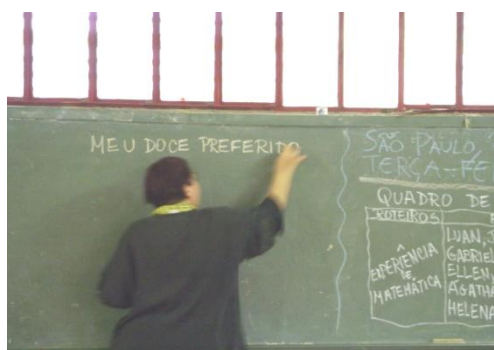 MEU DOCE PREFERIDO
SÃO PAULO,
TERÇA-FE
QUADRO DE
ROTEIROS
EXPERIÊNCIA
DE
MATEMÁTICA
LUAN, J
GABRIEL
ELLEN,
AGATHA
HELENA